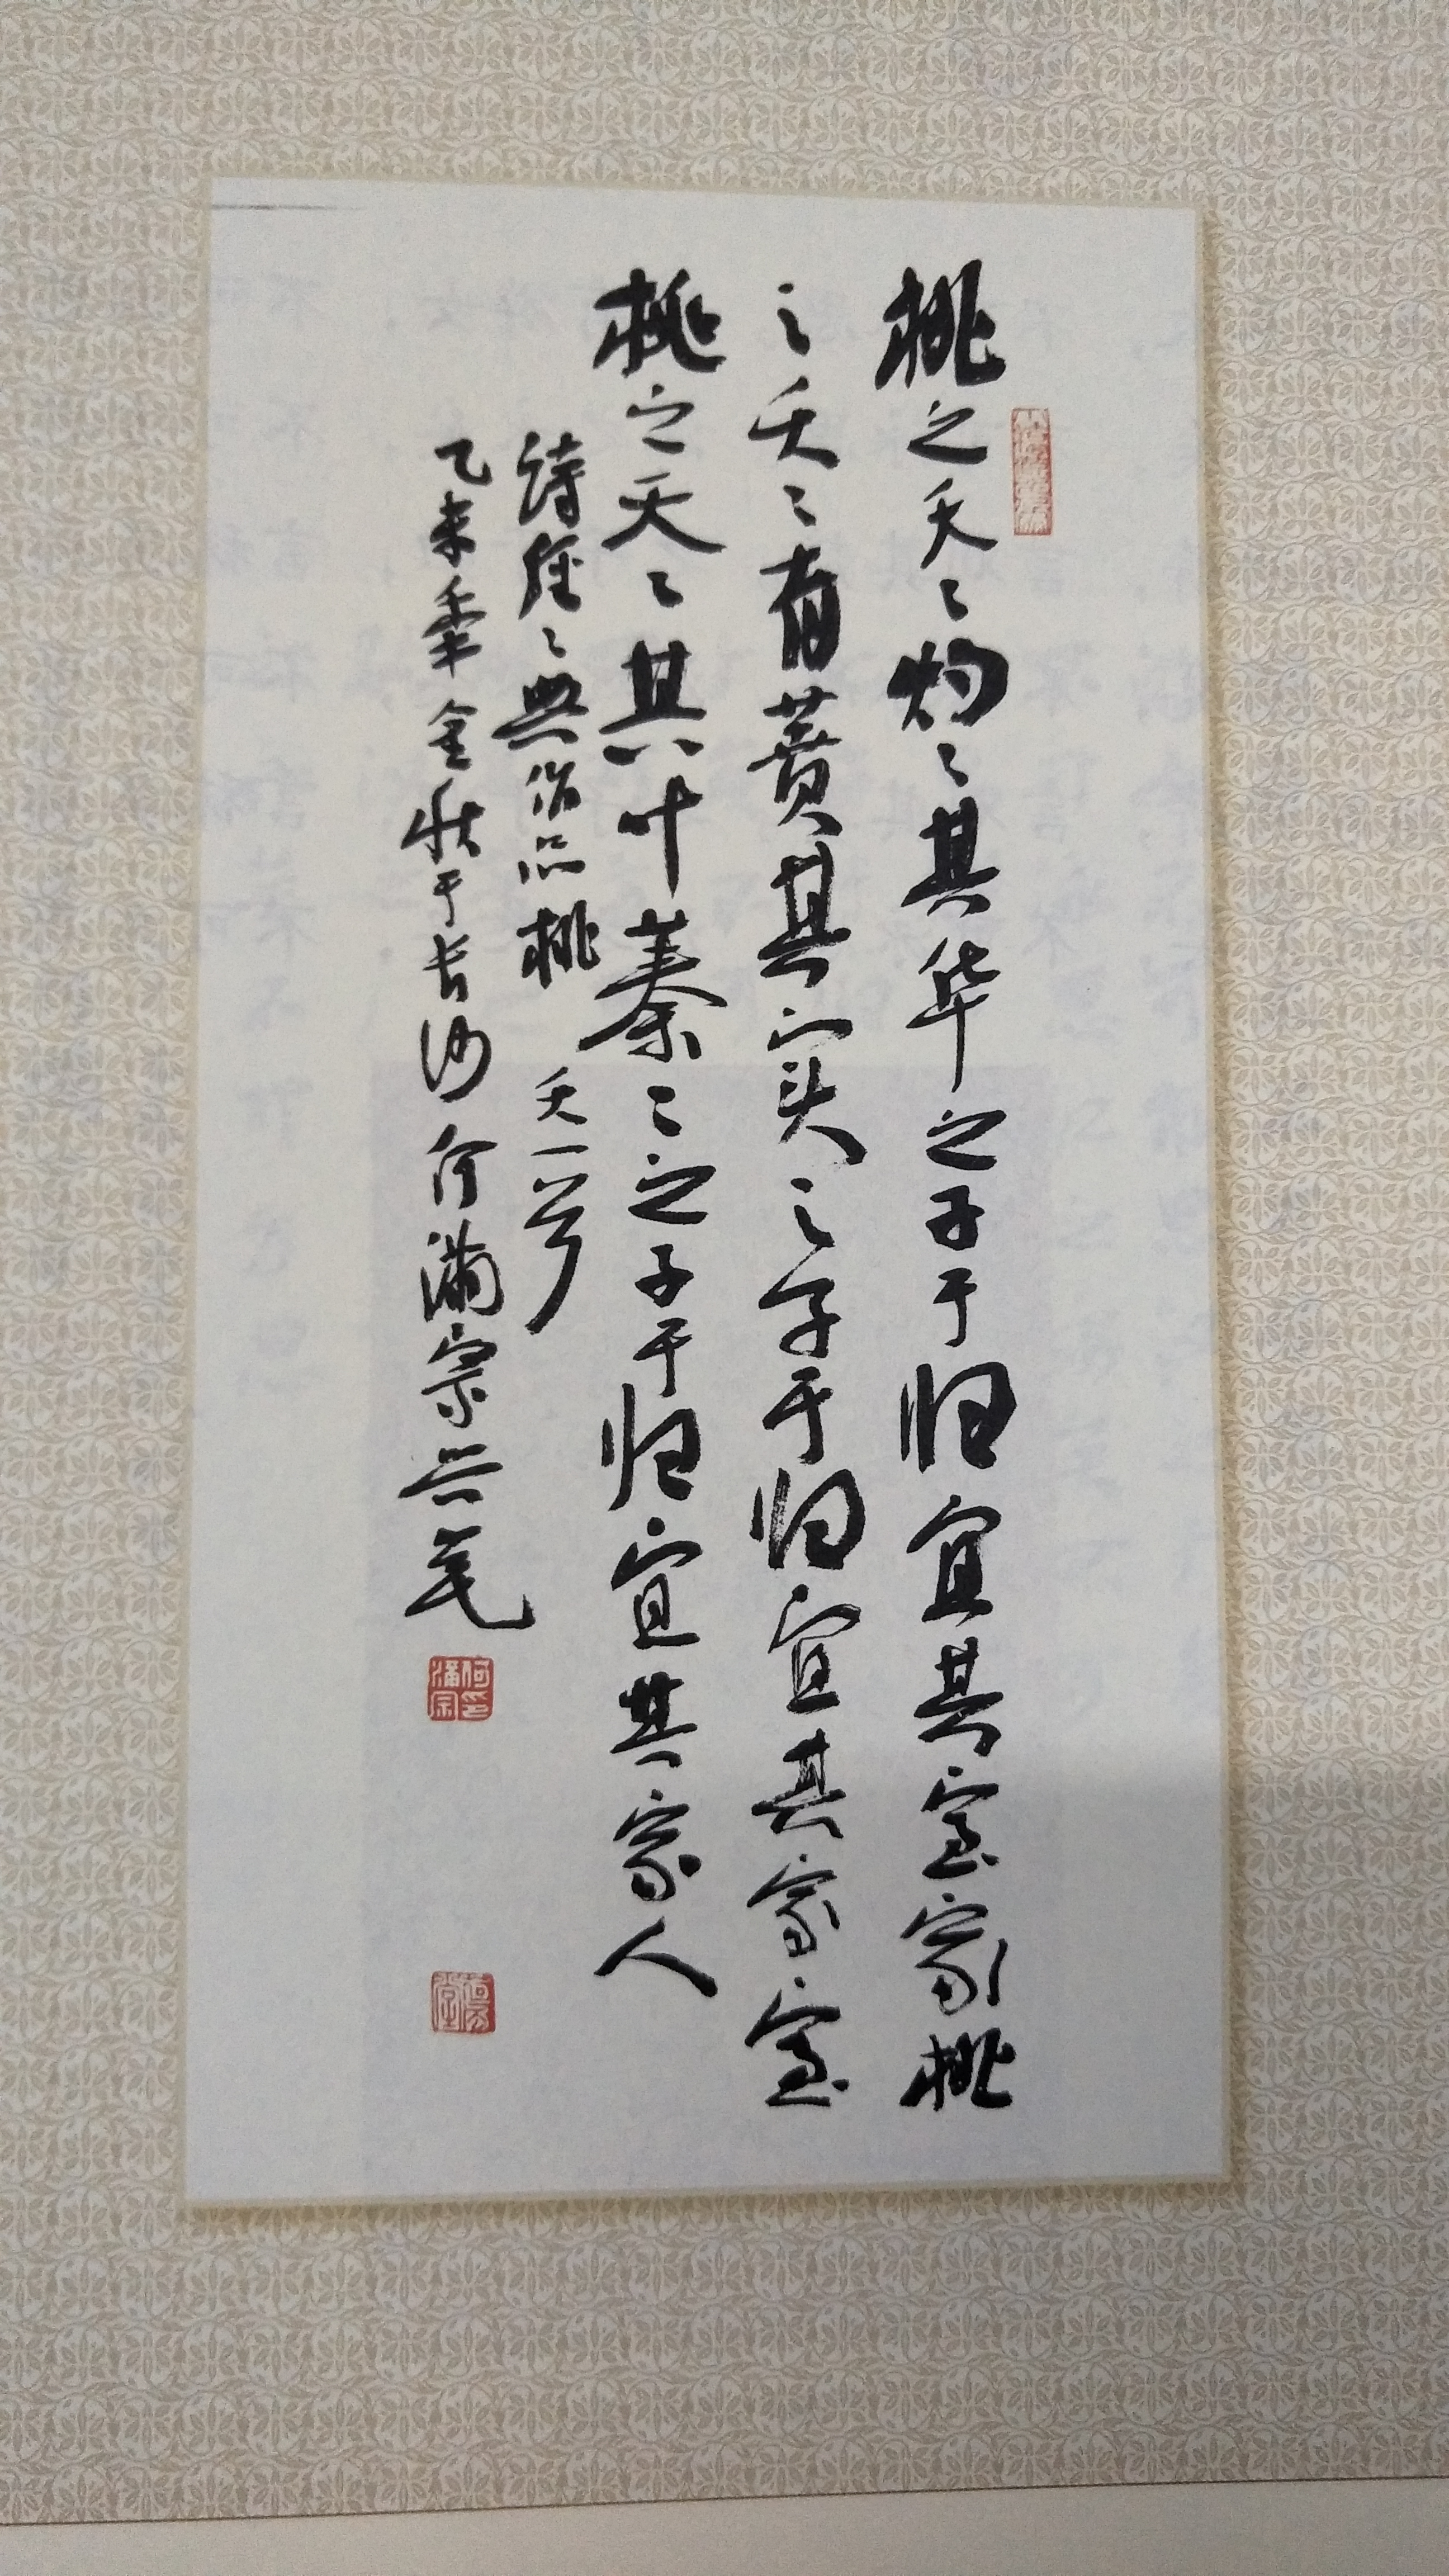 桃之夭〻灼〻其华之子于归宜其室家桃
之夭〻有蕡其实之子于归宜其家室
桃之夭〻其叶蓁〻之子于归宜其家人
诗经〻典作品桃夭一首
乙未年金秋于长沙何满宗
何满宗印